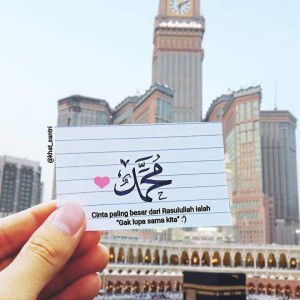 محمد
Cinta paling besar dari Rasulullah ialah
"Gak lupa sama kita" :')
@khat_santri